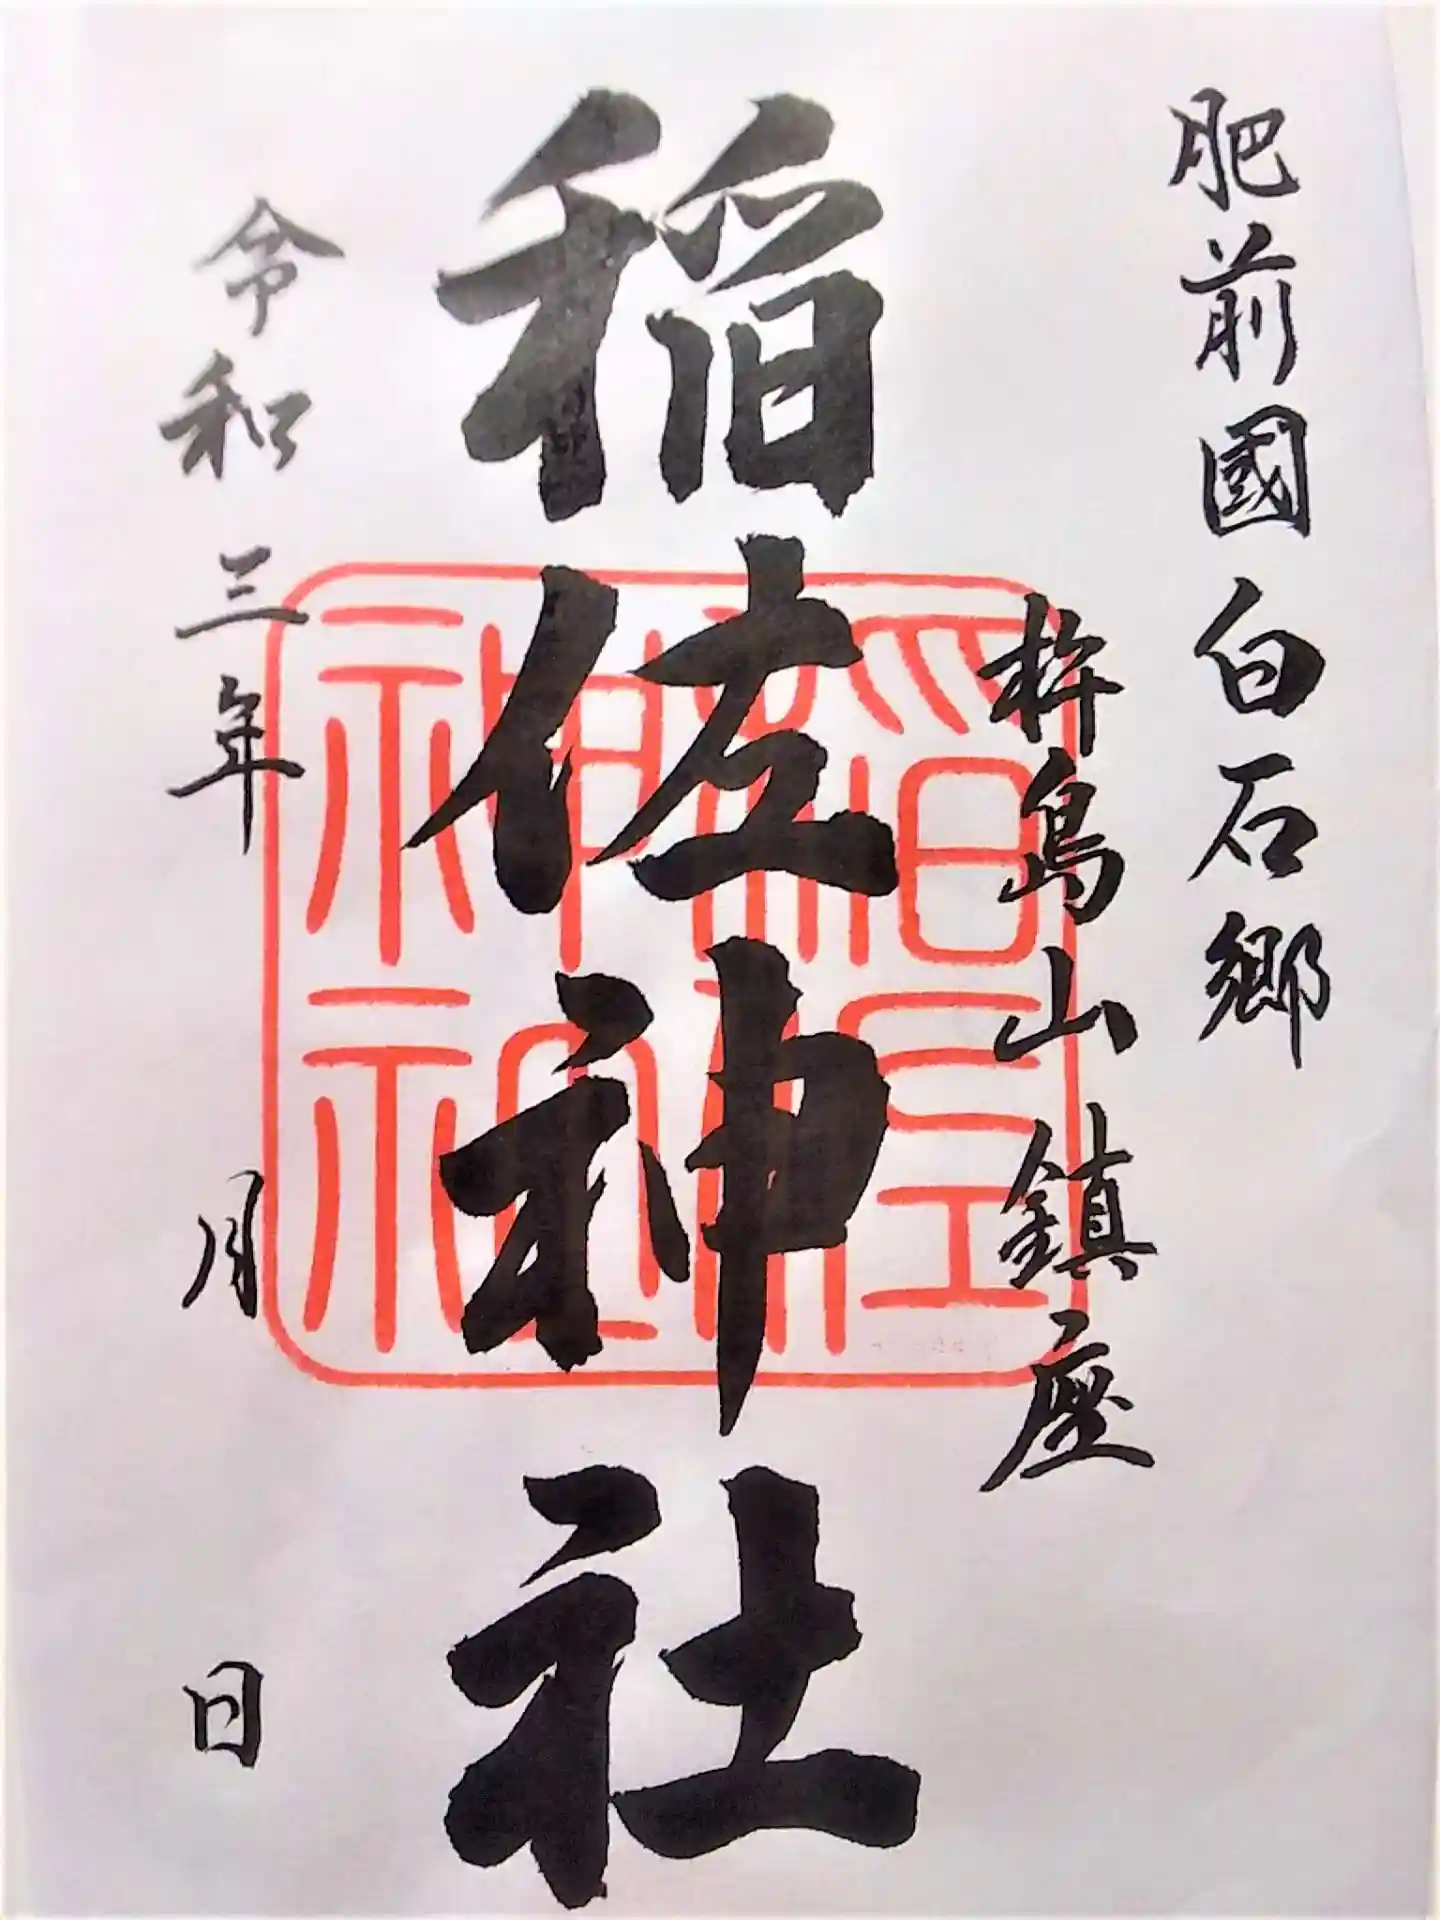 肥前國白石郷
杵島山鎮座
稲佐神社
稲佐神社
令和三年 月 日